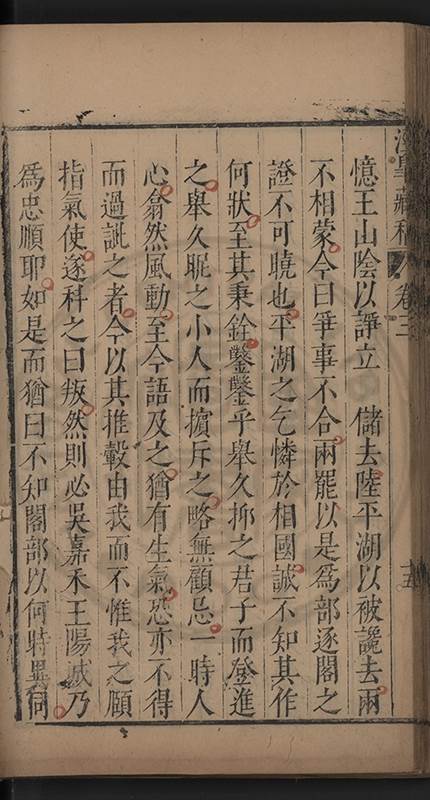 憶王山陰以諍立　儲去陸平湖以被讒去兩
不相蒙今日爭事不合兩罷以是爲部逐閣之
證不可曉也平湖之乞憐於相國誠不知其作
何狀至其秉銓鑿鑿乎舉久抑之君子而登進
之舉久昵之小人而擯斥之略無顧忌一時人
心翕然風動至今語及之猶有生氣恐亦不得
而過訿之者今以其推轂由我而不惟我之頤
指氣使遂科之曰叛然則必吳嘉禾王陽城乃
爲忠順耶如是而猶曰不知閣部以何時異同
藏稿
卷三